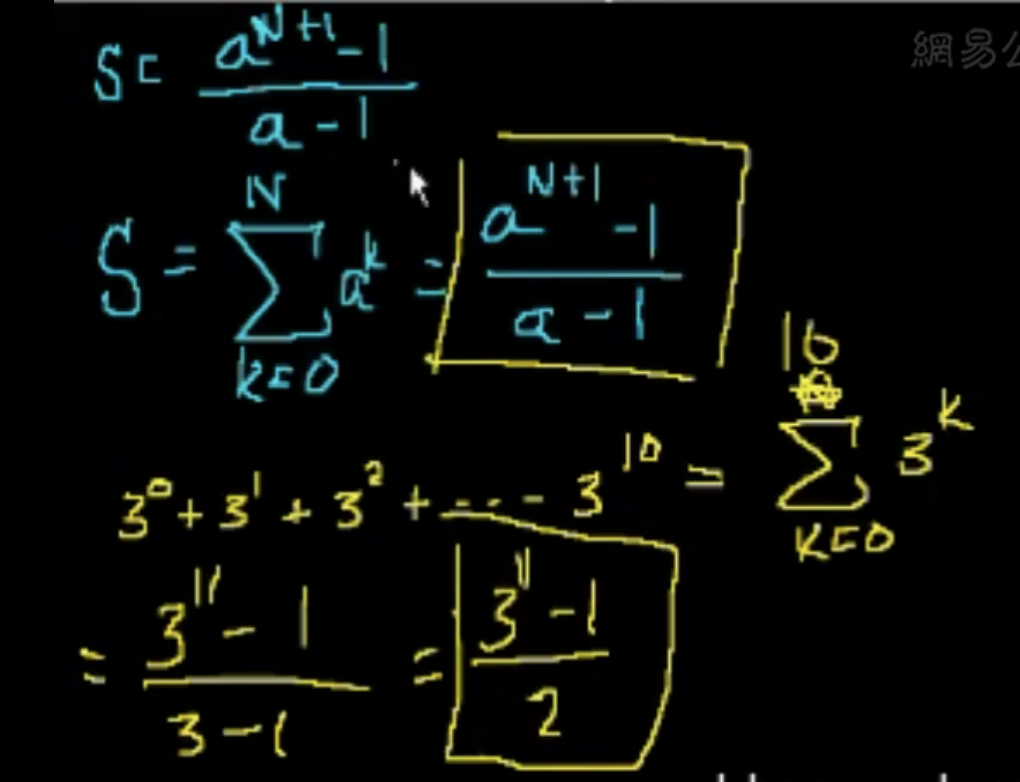 網易公
S = \frac{a^{N+1} - 1}{a - 1}
S = \sum_{k=0}^{N} a^k = \frac{a^{N+1} - 1}{a - 1}
3^0 + 3^1 + 3^2 + --- 3^{10} = \sum_{k=0}^{10} 3^k
= \frac{3^{11} - 1}{3 - 1} = \frac{3^{11} - 1}{2}